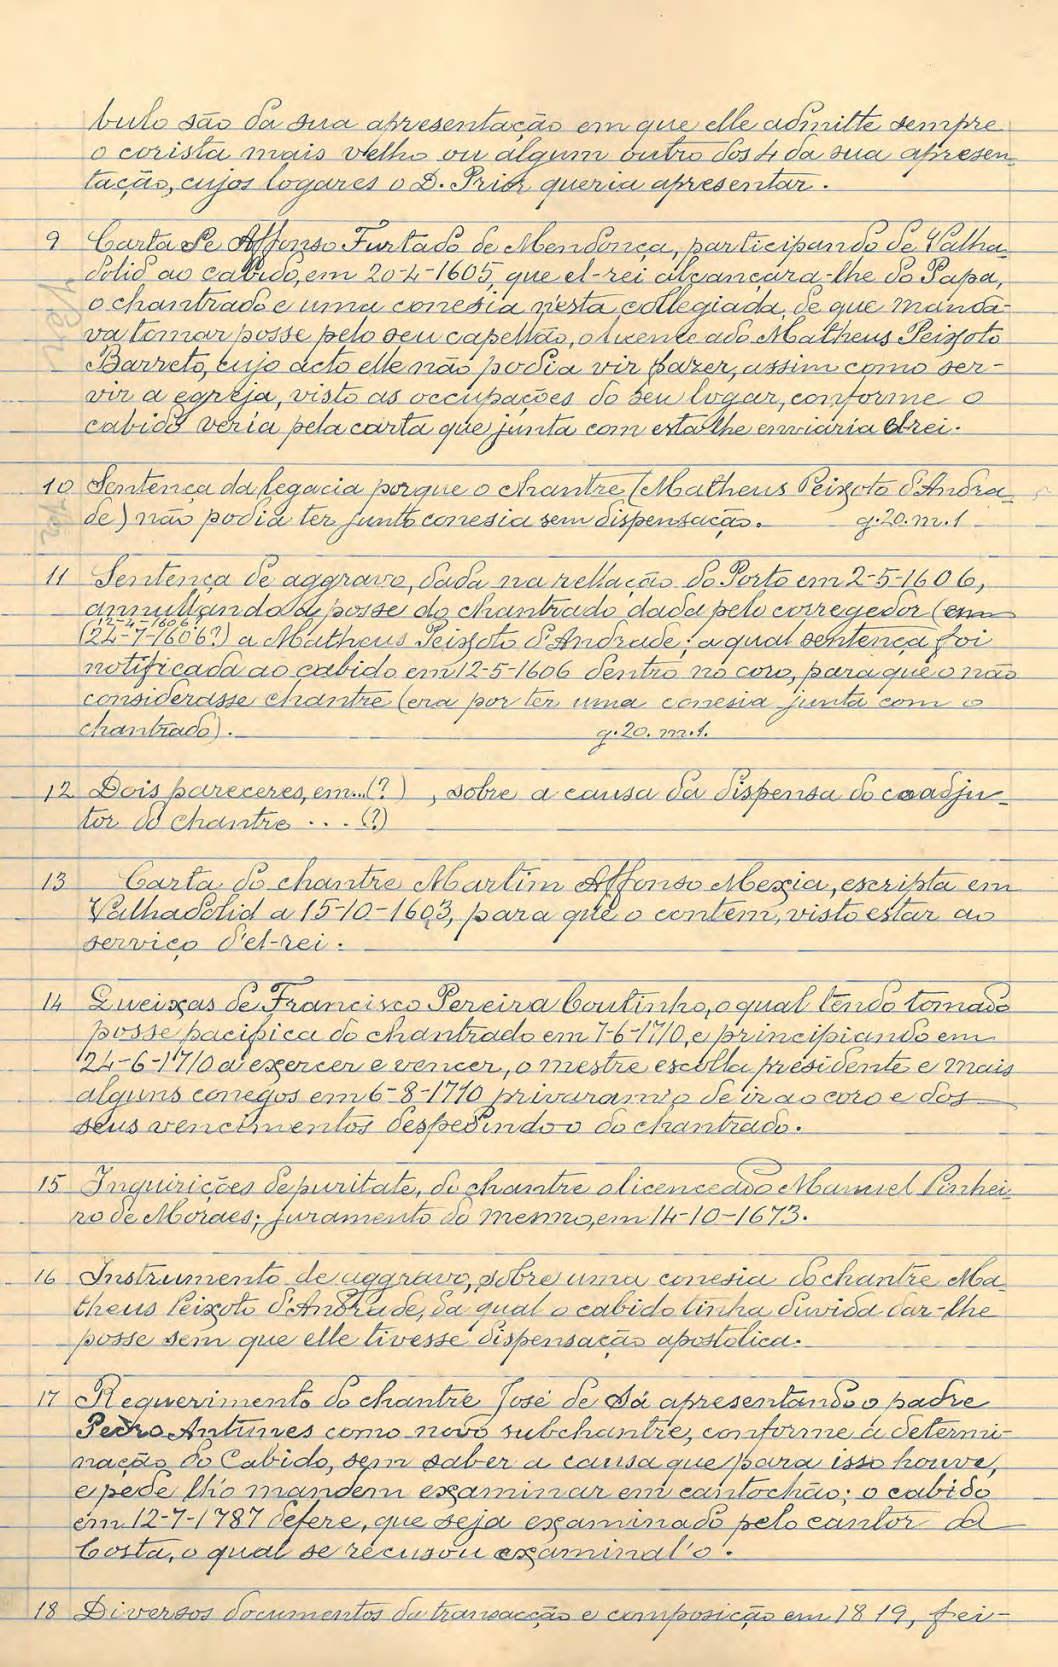 bulo são da sua apresentação em que elle admitte sempre
o corista mais velho ou algum outro dos 4 da sua apresen-
tação, cujos logares o D. Prior queria apresentar.
9 Carta de Affonso Furtado de Mendonça, participando de Valha-
dolid ao cabido, em 20-4-1605, que el-rei alcançara-lhe do Papa,
o chantrado e uma conesia n'esta collegiada, de que manda-
va tomar posse pelo seu capellão, o licenceado Matheus Peixoto
Barreto, cujo acto elle não podia vir fazer, assim como ser-
vir a egreja, visto as occupações do seu logar, conforme o
cabido veria pela carta que junta com esta lhe enviaria elrei.
10 Sentença da legacia porque o chantre (Matheus Peixoto d'Andra-
de) não podia ter junto conesia sem dispensação. g.20.m.1
11 Sentença de aggravo, dada na rellação do Porto em 2-5-1606,
annullando a posse do chantrado dada pelo corregedor (em
12-4-1606?
(24-7-1606?) a Matheus Peixoto d'Andrade; a qual sentença foi
notificada ao cabido em 12-5-1606 dentro no coro, para que o não
considerasse chantre (era por ter uma conesia junta com o
chantrado). g.20.m.1.
12 Dois pareceres, em...(?) , sobre a causa da dispensa do coadju-
tor do chantre ... (?)
13 Carta do chantre Martim Affonso Mexia, escripta em
Valhadolid a 15-10-1603, para que o contem, visto estar ao
serviço d'el-rei.
14 Queixas de Francisco Pereira Coutinho, o qual tendo tomado
posse pacifica do chantrado em 7-6-1710, e principiando em
24-6-1710 a exercer e vencer, o mestre escolla presidente e mais
alguns conegos em 6-8-1710 privaram'o de ir ao coro e dos
seus vencimentos despedindo-o do chantrado.
15 Inquirições de puritate, do chantre o licenceado Manuel Pinhei-
ro de Moraes; juramento do mesmo, em 14-10-1673.
16 Instrumento de aggravo, sobre uma conesia do chantre Ma-
theus Peixoto d'Andrade, da qual o cabido tinha duvida dar-lhe
posse sem que elle tivesse dispensação apostolica.
17 Requerimento do chantre José de Sá apresentando o padre
Pedro Antunes como novo subchantre, conforme a determi-
nação do Cabido, sem saber a causa que para isso houve,
e pede lh'o mandem examinar em cantochão; o cabido
em 12-7-1787 defere, que seja examinado pelo cantor da
Costa, o qual se recusou examinal'o.
18 Diversos documentos da transacção e composição em 1819, fei-